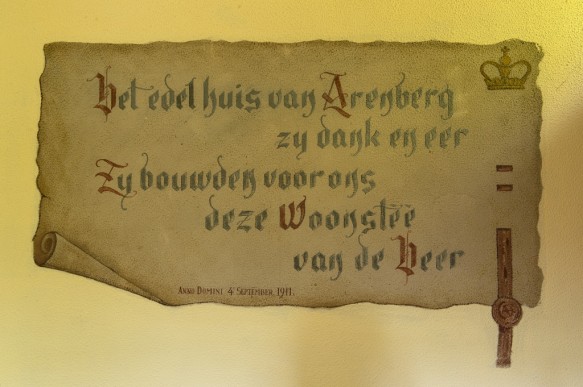 Het edel huis van Arenberg
zy dank en eer
Zy bouwden voor ons
deze Woonsteë
van de Heer
Anno Domini 4 September 1911.